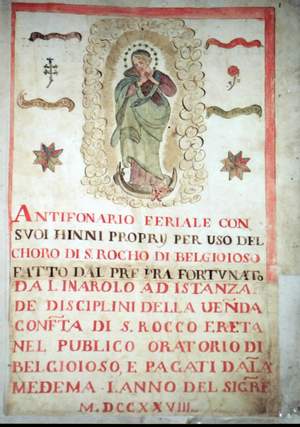 ANTIFONARIO FERIALE CON
SVOI HINNI PROPRIJ PER USO DEL
CHORO DI S. ROCHO DI BELGIOIOSO
FATTO DAL PRE FRA FORTUNATO
DA LINAROLO AD ISTANZA
DE DISCIPLINI DELLA UEÑDA
CONFTA DI S. ROCCO ERETA
NEL PUBLICO ORATORIO DI
BELGIOIOSO, E PAGATI DALA
MEDEMA LANNO DEL SIGRE
M. DCCXXVIII